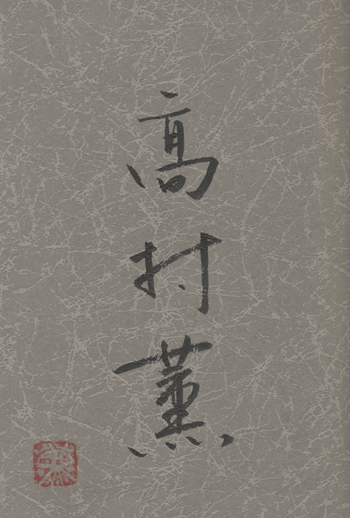 高村薫